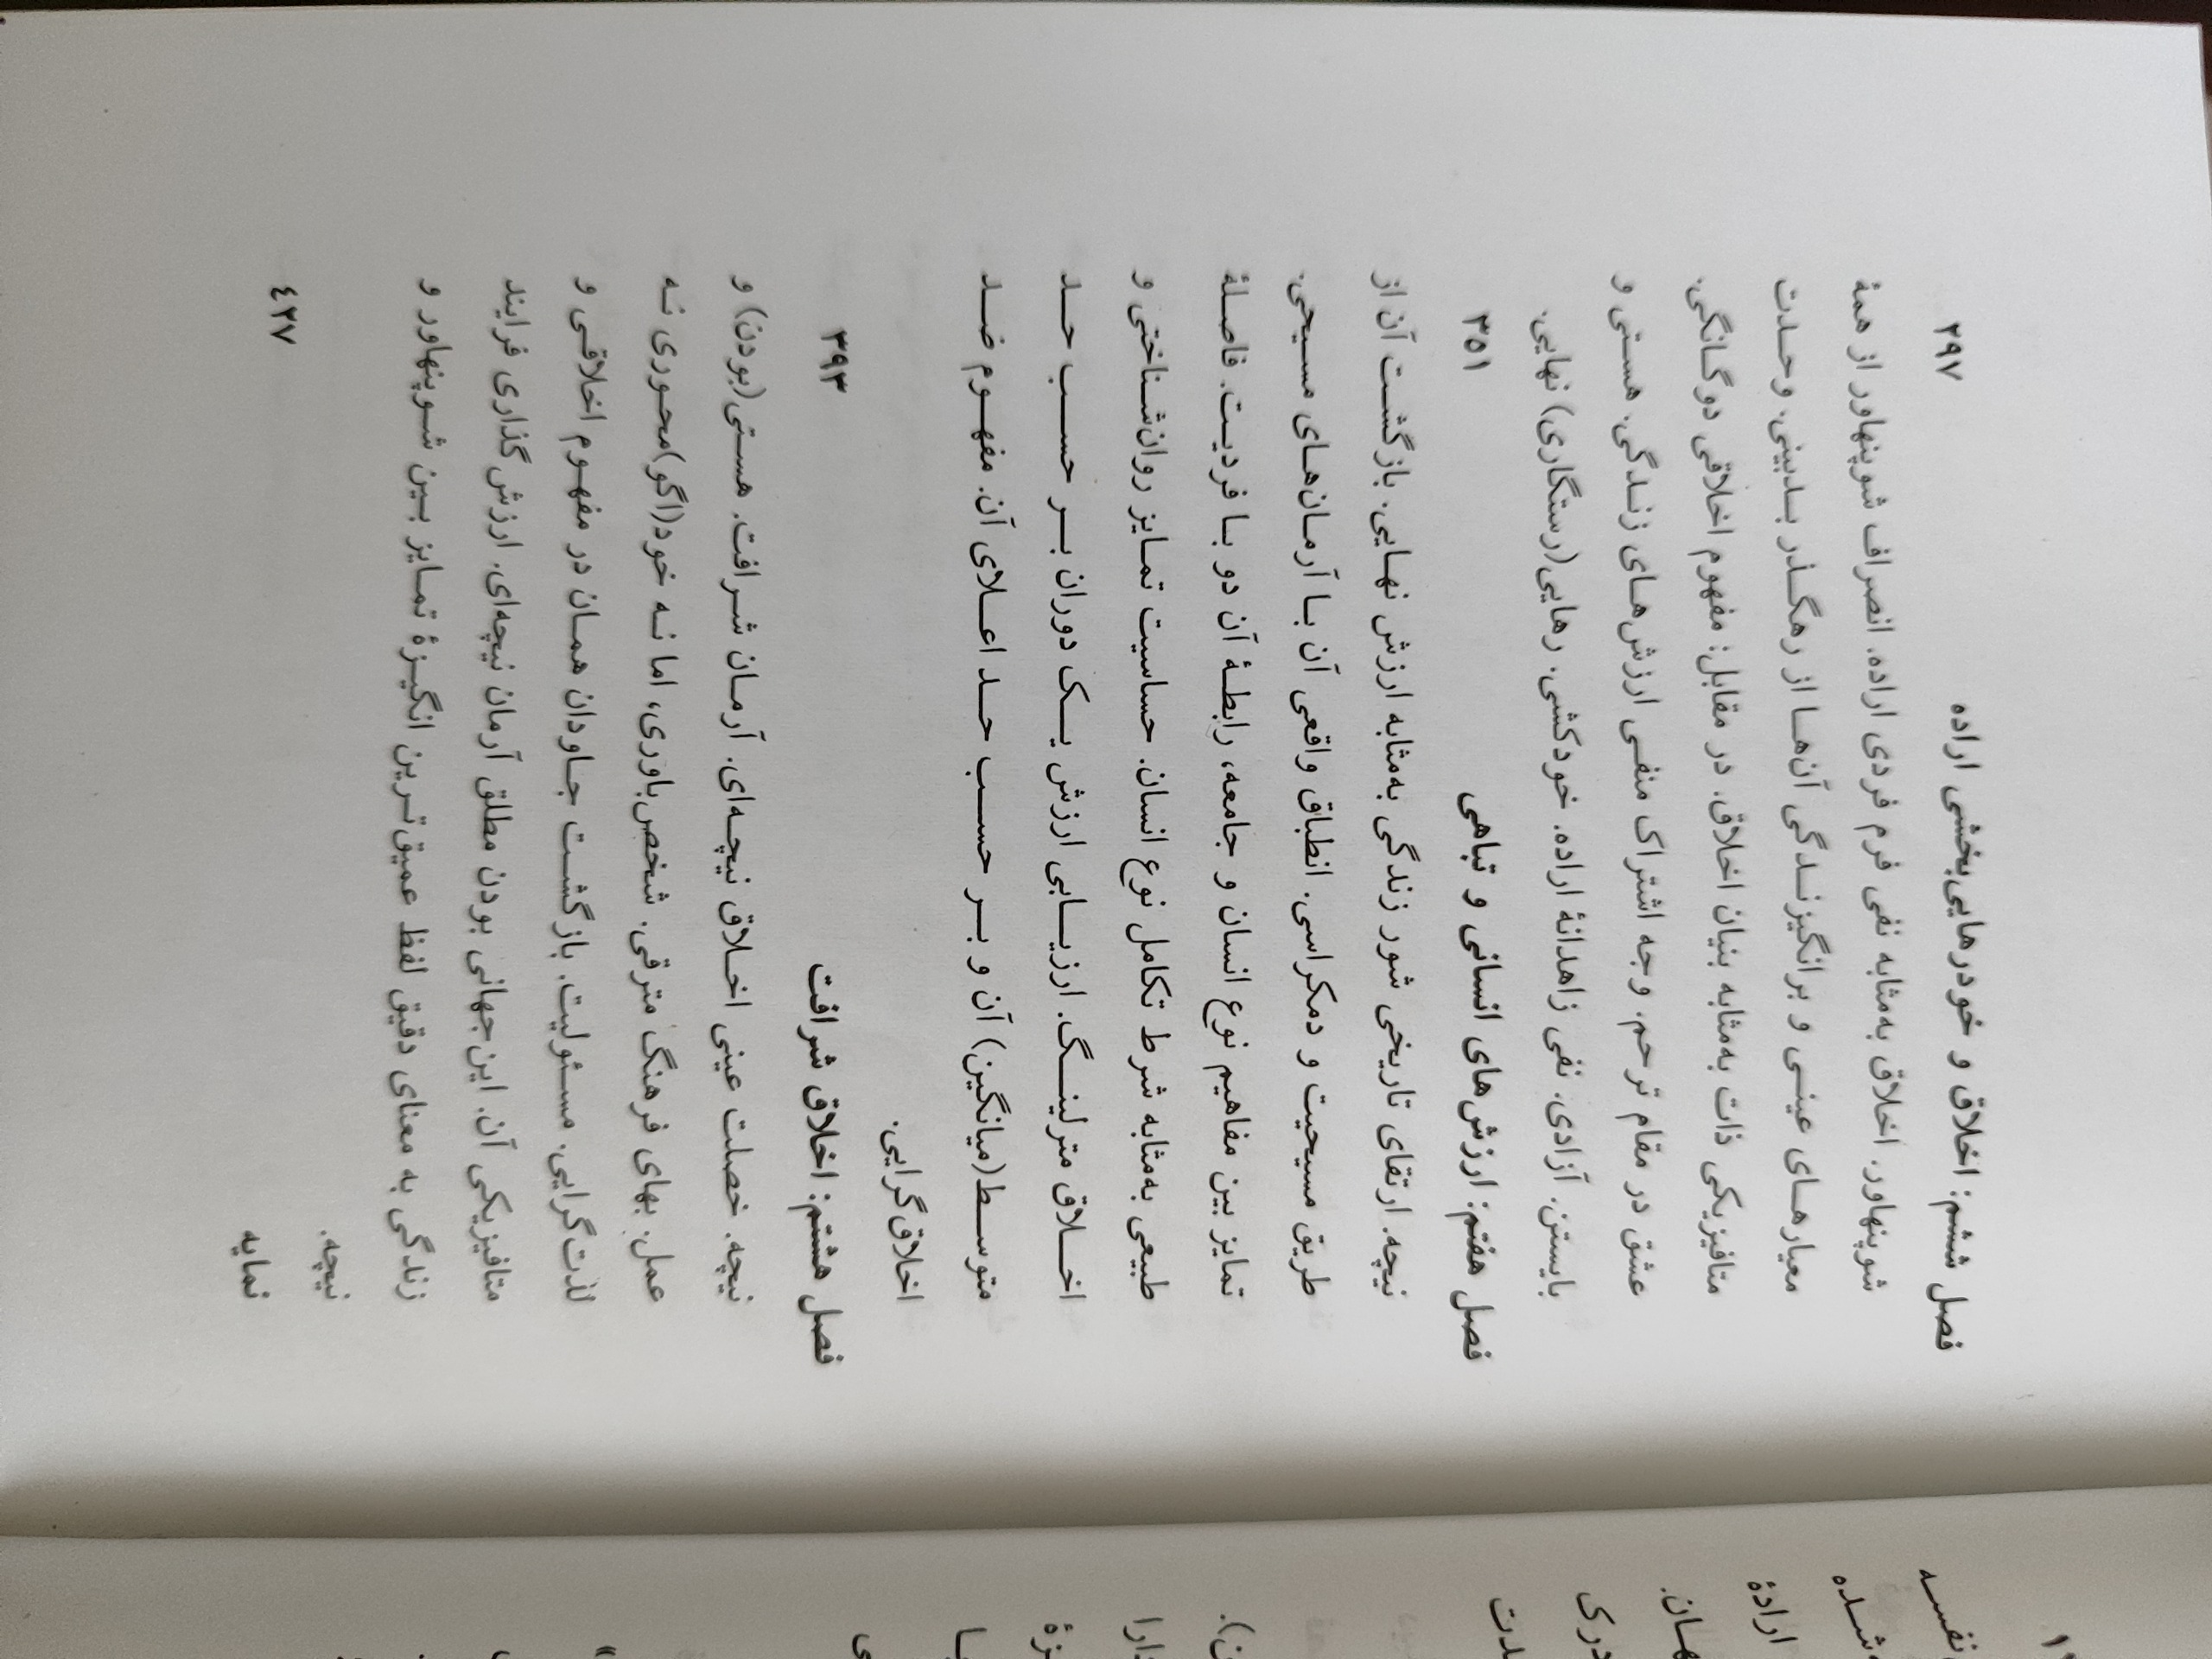 فصل ششم: اخلاق و خودرهایی‌بخشی اراده ۲۹۷
شوپنهاور. اخلاق به‌مثابه نفی فرم فردی اراده. انصراف شوپنهاور از همهٔ
معیارهای عینی و برانگیزندگی آن‌ها از رهگذر بدبینی. وحدت
متافیزیکی ذات به‌مثابه بنیان اخلاق. در مقابل: مفهوم اخلاقی دوگانگی.
عشق در مقام ترحم. وجه اشتراک منفی ارزش‌های زندگی. هستی و
بایستن. آزادی. نفی زاهدانهٔ اراده. خودکشی. رهایی(رستگاری) نهایی.
فصل هفتم: ارزش‌های انسانی و تباهی ۳۵۱
نیچه. ارتقای تاریخی شور زندگی به‌مثابه ارزش نهایی. بازگشت آن از
طریق مسیحیت و دمکراسی. انطباق واقعی آن با آرمان‌های مسیحی.
تمایز بین مفاهیم نوع انسان و جامعه، رابطهٔ آن دو با فردیت. فاصلهٔ
طبیعی به‌مثابه شرط تکامل نوع انسان. حساسیت تمایز روان‌شناختی و
اخلاق مترلینگ. ارزیابی ارزش یک دوران بر حسب حد
متوسط(میانگین) آن و بر حسب حد اعلای آن. مفهوم ضد
اخلاق‌گرایی.
فصل هشتم: اخلاق شرافت ۳۹۳
نیچه. خصلت عینی اخلاق نیچه‌ای. آرمان شرافت. هستی(بودن) و
عمل. بهای فرهنگ مترقی. شخص‌باوری، اما نه خود(اگو)محوری نه
لذت‌گرایی. مسئولیت. بازگشت جاودان همان در مفهوم اخلاقی و
متافیزیکی آن. این‌جهانی بودن مطلق آرمان نیچه‌ای. ارزش‌گذاری فرایند
زندگی به معنای دقیق لفظ عمیق‌ترین انگیزهٔ تمایز بین شوپنهاور و
نیچه.
نمایه ۴۲۷
نفسه
شده
ارادهٔ
هان.
درک
دت
ن).
دارا
زهٔ